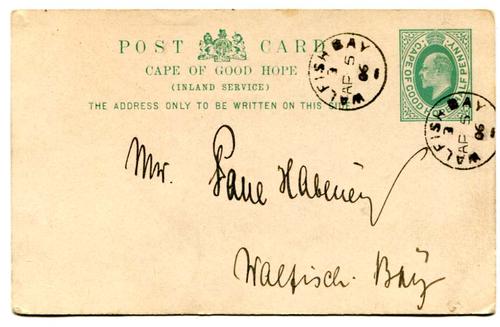 POST CARD
CAPE OF GOOD HOPE
(INLAND SERVICE)
THE ADDRESS ONLY TO BE WRITTEN ON THIS
WALFISH BAY
AP 5
06
CAPE OF GOOD HALFPENNY
WALFISH BAY
AP 5
06
Mr.
Walfisch Bay